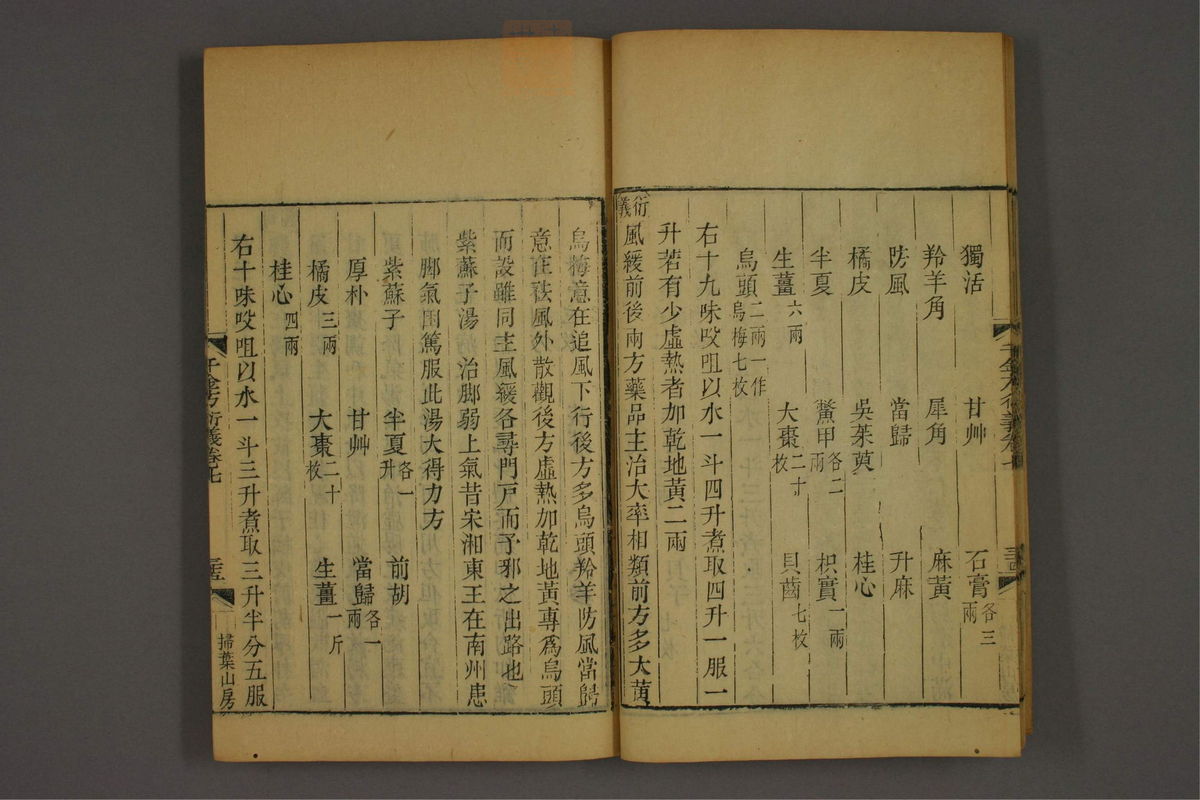 獨活 甘艸 石膏各三兩
羚羊角 犀角 麻黃
防風 當歸 升麻
橘皮 吳茱萸 桂心
半夏 鱉甲各二兩 枳實一兩
生薑六兩 大棗二十枚 貝齒七枚
烏頭二兩一作烏梅七枚
右十九味㕮咀以水一斗四升煮取四升一服一
升若有少虛熱者加乾地黃二兩
衍義風緩前後兩方藥品主治大率相類前方多大黃
烏梅意在追風下行後方多烏頭羚羊防風當歸
意在祛風外散觀後方虛熱加乾地黃專爲烏頭
而設雖同主風緩各尋門戸而予邪之出路也
紫蘇子湯 治脚弱上氣昔宋湘東王在南州患
脚氣困篤服此湯大得力方
紫蘇子 半夏各一升 前胡
厚朴 甘艸 當歸各一兩
橘皮三兩 大棗二十枚 生薑一斤
桂心四兩
右十味㕮咀以水一斗三升煮取三升半分五服
千金方衍義卷七 三五 掃葉山房